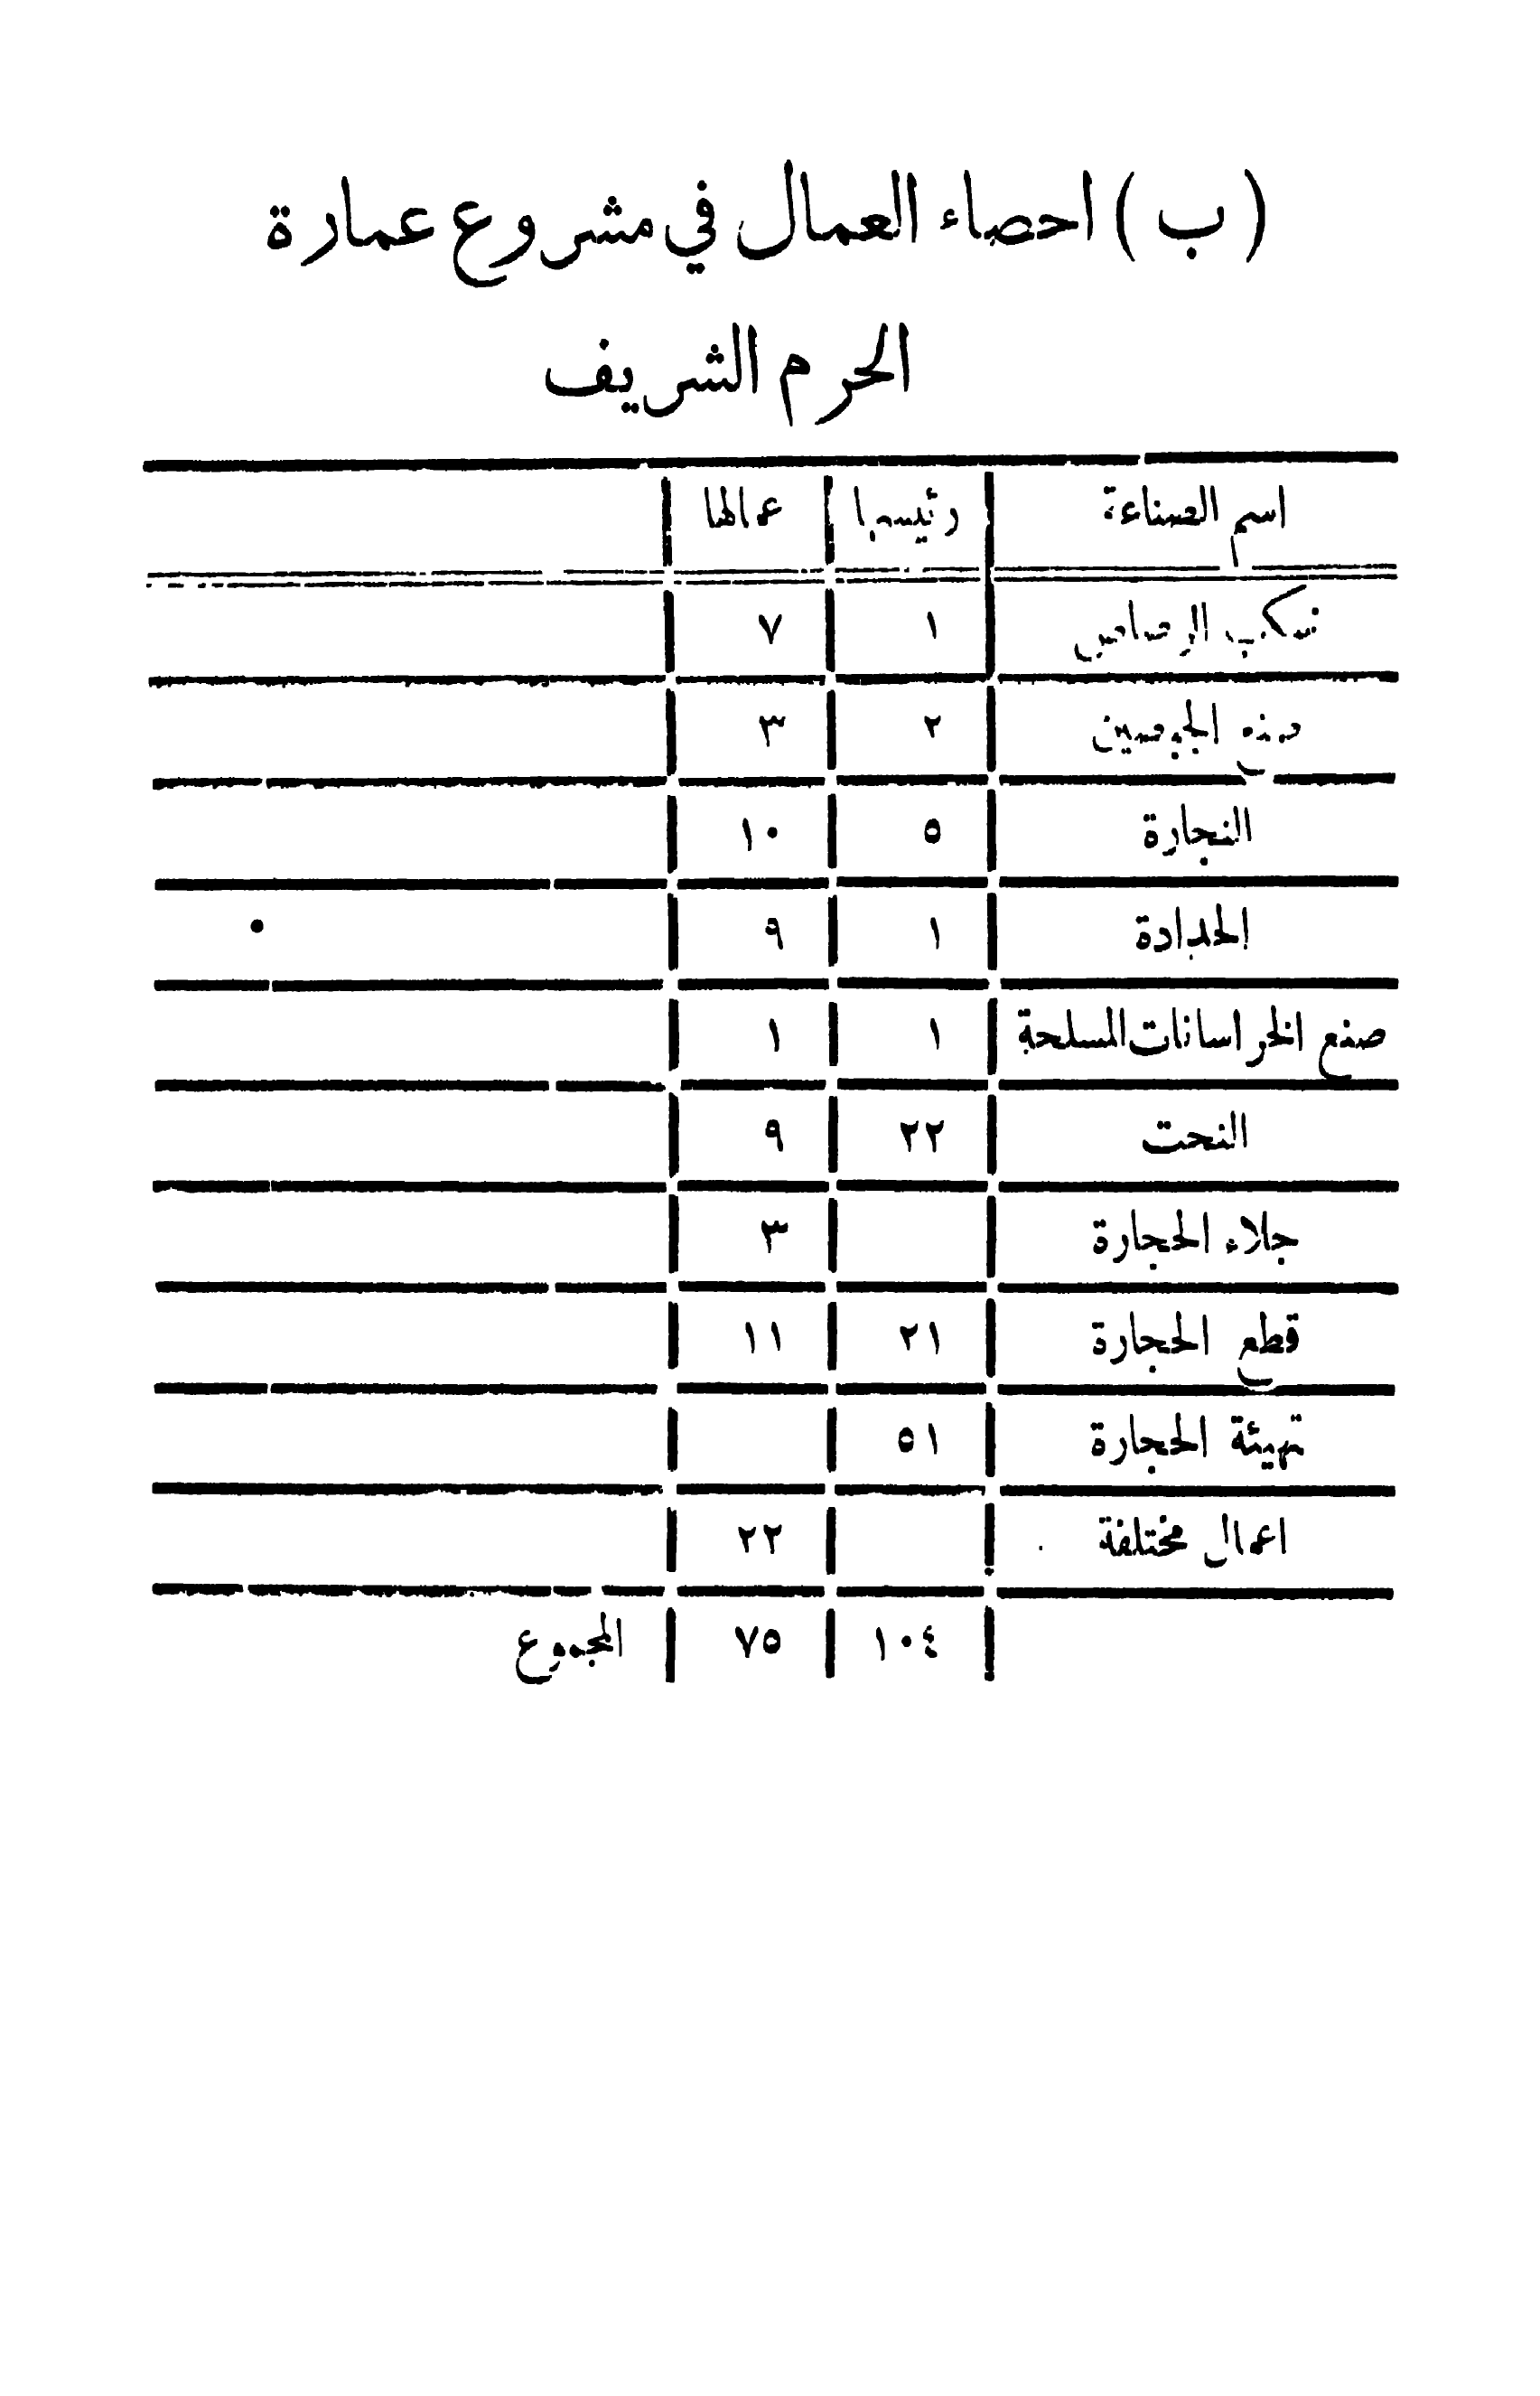 ( ب ) احصاء العمال في مشروع عمارة
الحرم الشريف
اسم الصناعة رئيسها عمالها
سكب الرصاص ١ ٧
صنع الجبصين ٢ ٣
النجارة ٥ ١٠
الحدادة ١ ٩
صنع الخراسانات المسلحة ١ ١
النحت ٢٢ ٩
جلاء الحجارة ٣
قطع الحجارة ٢١ ١١
تهيئة الحجارة ٥١
اعمال مختلفة ٢٢
١٠٤ ٧٥ المجموع